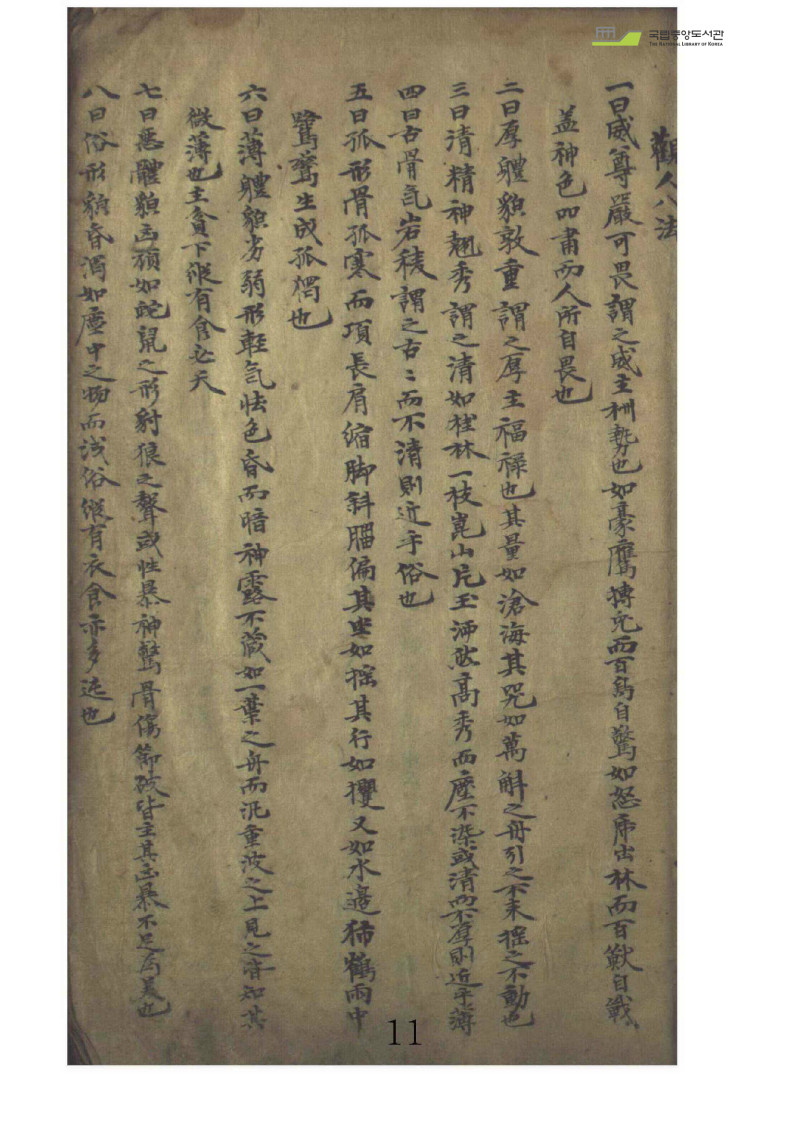 국립중앙도서관
THE NATIONAL LIBRARY OF KOREA
觀人八法
一曰威尊嚴可畏謂之威主權勢也如豪鷹搏兎而百鳥自驚如怒虎出林而百獸自戰
盖神色四肅而人所自畏也
二曰厚體貌敦重謂之厚主福禄也其量如滄海其器如萬斛之舟引之不来摇之不動也
三曰清精神翹秀謂之清如桂林一枝崑山片玉洒然高秀而塵不染或清而不厚則近乎薄
四曰古骨氣岩稜謂之古〻而不清則近乎俗也
五曰孤形骨孤寒而項長肩縮脚斜腦偏其坐如摇其行如攫又如水邊獨鶴雨中
鷺鷥生成孤獨也
六曰薄體貌劣弱形輕氣怯色昏而暗神露不藏如一葉之舟而汎重波之上見之皆知其
微薄也主貧下縱有食必夭
七曰惡體貌凶頑如蛇鼠之形豺狼之聲或性暴神驚骨傷節破皆主其凶暴不足爲美也
八曰俗形貌昏濁如塵中之物而浅俗縱有衣食亦多迍也
11